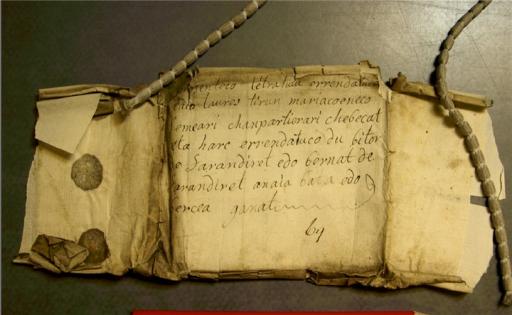 tetrahaa errendatuco
laures terun mariacoeneco
emeari chanpartierari chebecat
eta harc errendatuco du bitor
Sarandiret edo bernat de
arandiret anaia bata edo
ercea ganat
by